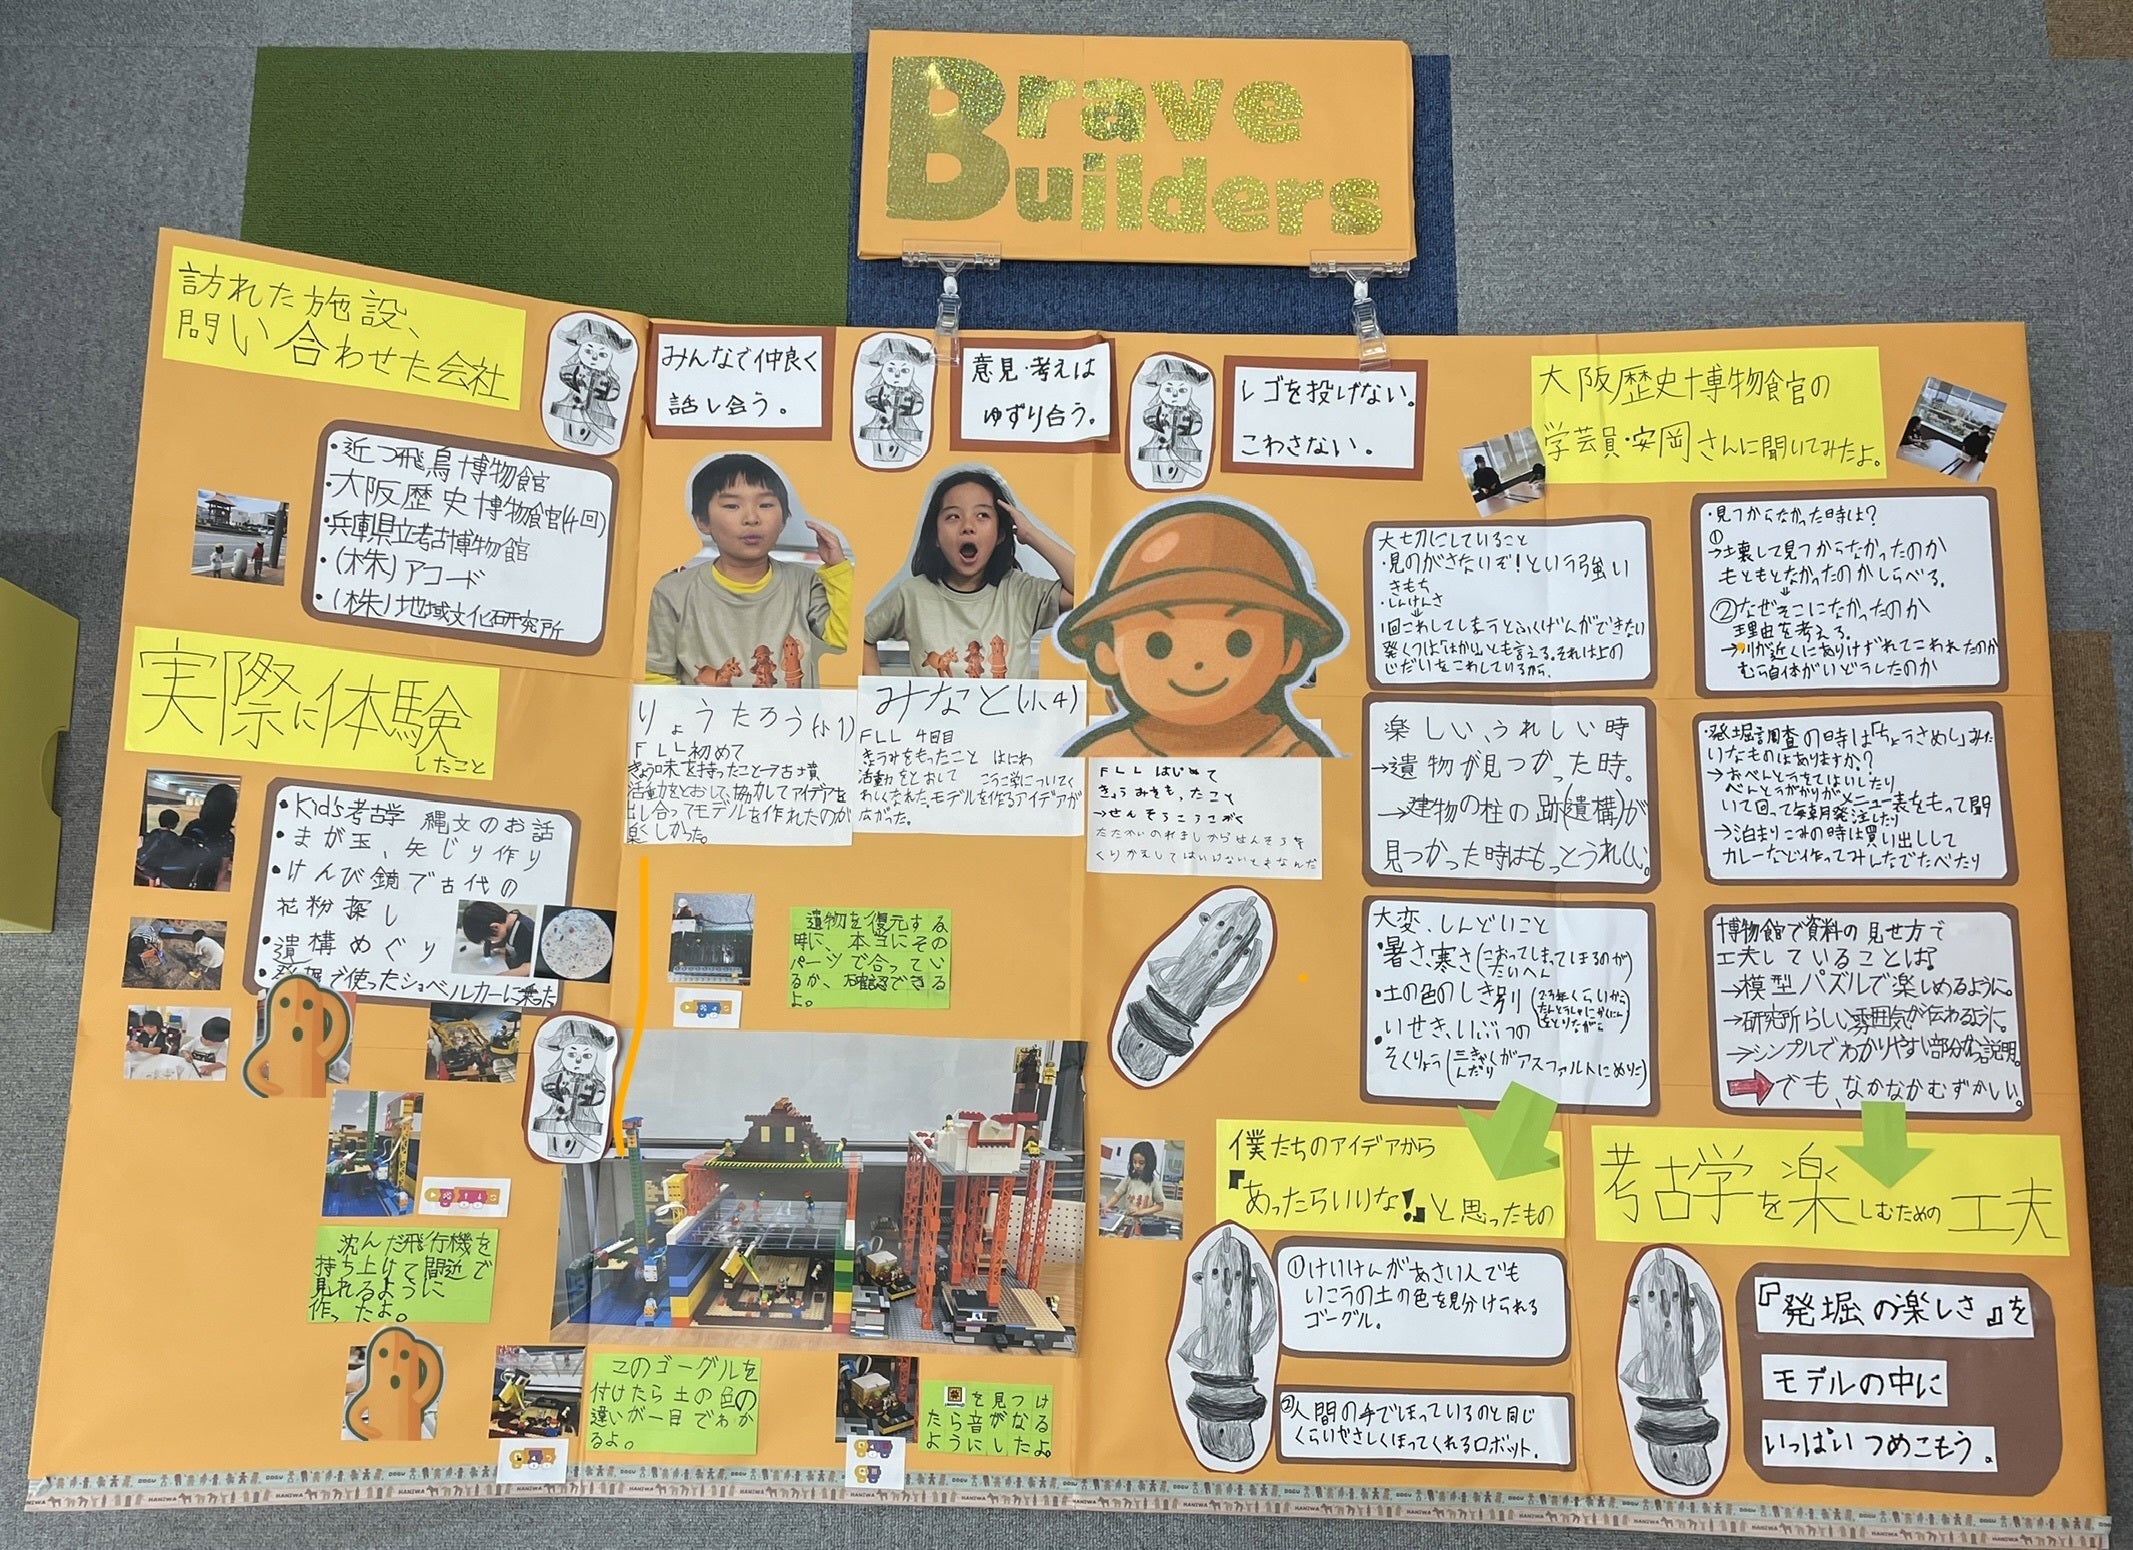 Brave
Builders
訪れた施設、
問い合わせた会社
・近つ飛鳥博物館
・大阪歴史博物館(4回)
・兵庫県立考古博物館
・(株)アコード
・(株)地域文化研究所
実際に体験
したこと
・Kid's考古学 縄文のお話
・まが玉、矢じり作り
・けんび鏡で古代の
花粉探し
・遺構めぐり
・発掘で使ったショベルカーに乗った
みんなで仲良く
話し合う。
意見・考えは
ゆずり合う。
レゴを投げない。
こわさない。
りょうたろう(小1)
FLL初めて
きょう味を持ったこと→古墳
活動をとおして、協力してアイデアを
出し合ってモデルを作れたのが
楽しかった。
みなと(小4)
FLL 4回目
きょうみをもったこと はにわ
活動をとおして こうこ学についてく
わしくなれた。モデルを作るアイデアが
広がった。
FLL はじめて
きょうみをもったこと
→せんそうこうこがく
たたかいのれきしからせんそうを
くりかえしてはいけないとまなんだ
遺物を復元する
時に、本当にその
パーツで合ってい
るか、確認できる
よ。
沈んだ飛行機を
持ち上げて間近で
見れるように
作ったよ。
このゴーグルを
付けたら土の色の
違いが一目でわか
るよ。
を見つけ
たら音がなる
ようにしたよ。
大阪歴史博物館の
学芸員・安岡さんに聞いてみたよ。
大切にしていること
・見のがさないぞ!という強い
きもち
・しんけんさ
↓
1回こわしてしまうとふくげんができない
発くつは「はかい」とも言える。それは上の
じだいをこわしているから。
楽しい、うれしい時
→遺物が見つかった時。
→建物の柱の跡(遺構)が
見つかった時はもっとうれしい。
大変、しんどいこと
・暑さ、寒さ(こおってしまってほるのが
たいへん)
・土の色のしき別(2、3年くらいから
いせき、いぶつの
そくりょう(三きゃくがアスファルトにめりこ
んだり)
・見つからなかった時は?
①
→土壌して見つからなかったのか
もともとなかったのかしらべる。
↓
②なぜそこになかったのか
理由を考える。
→川が近くにありけずれてこわれたのか
むら自体がいどうしたのか
・発掘調査の時は「ちょうさめし」みた
いなものはありますか?
→おべんとうをてはいしたり
べんとうがかりがメニュー表をもって聞
いて回って毎朝発注したり
→泊まりこみの時は買い出しして
カレーなど作ってみんなでたべたり
博物館で資料の見せ方で
工夫していることは?
→模型パズルで楽しめるように。
→研究所らしい雰囲気が伝わるように。
→シンプルでわかりやすい部分的な説明。
でも、なかなかむずかしい。
僕たちのアイデアから
『あったらいいな!』と思ったもの
①けいけんがあさい人でも
いこうの土の色を見分けられる
ゴーグル。
②人間の手でほっているのと同じ
くらいやさしくほってくれるロボット。
考古学を楽しむための工夫
『発掘の楽しさ』を
モデルの中に
いっぱいつめこもう。
DOGU
HANIWA